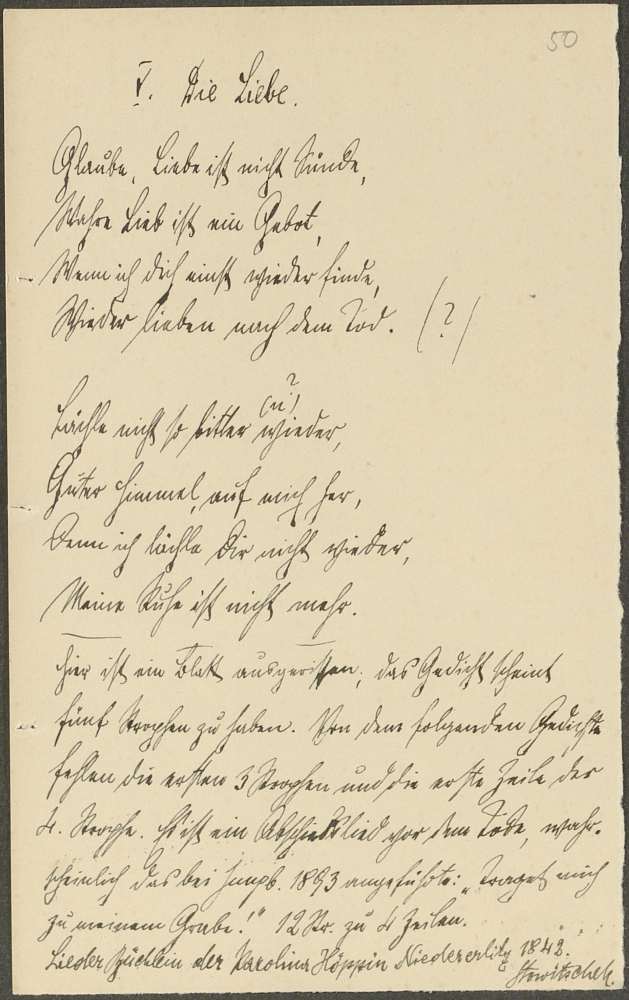 50
V. Die Liebe.
Glaube, Liebe ist nicht Sünde,
Wahre Lieb ist ein Gebot,
Wenn ich dich einst wieder finde,
Wieder lieben nach dem Tod. (?)
(n?)
Lächle nicht so bitter wieder,
Guter Himmel, auf mich her,
Denn ich lächle dir nicht wieder,
Meine Ruhe ist nicht mehr.
Hier ist ein Blatt ausgerissen; das Gedicht scheint
fünf Strophen zu haben. Von dem folgenden Gedichte
fehlen die ersten 3 Strophen und die erste Zeile der
4. Strophe. Es ist ein Abschiedslied vor dem Tode, wahr-
scheinlich das bei 1893 angeführte: „Traget mich
zu meinem Grabe!" 12 Str. zu 4 Zeilen.
Liederbüchlein der Karolina Höppin Niedererlitz 1842.